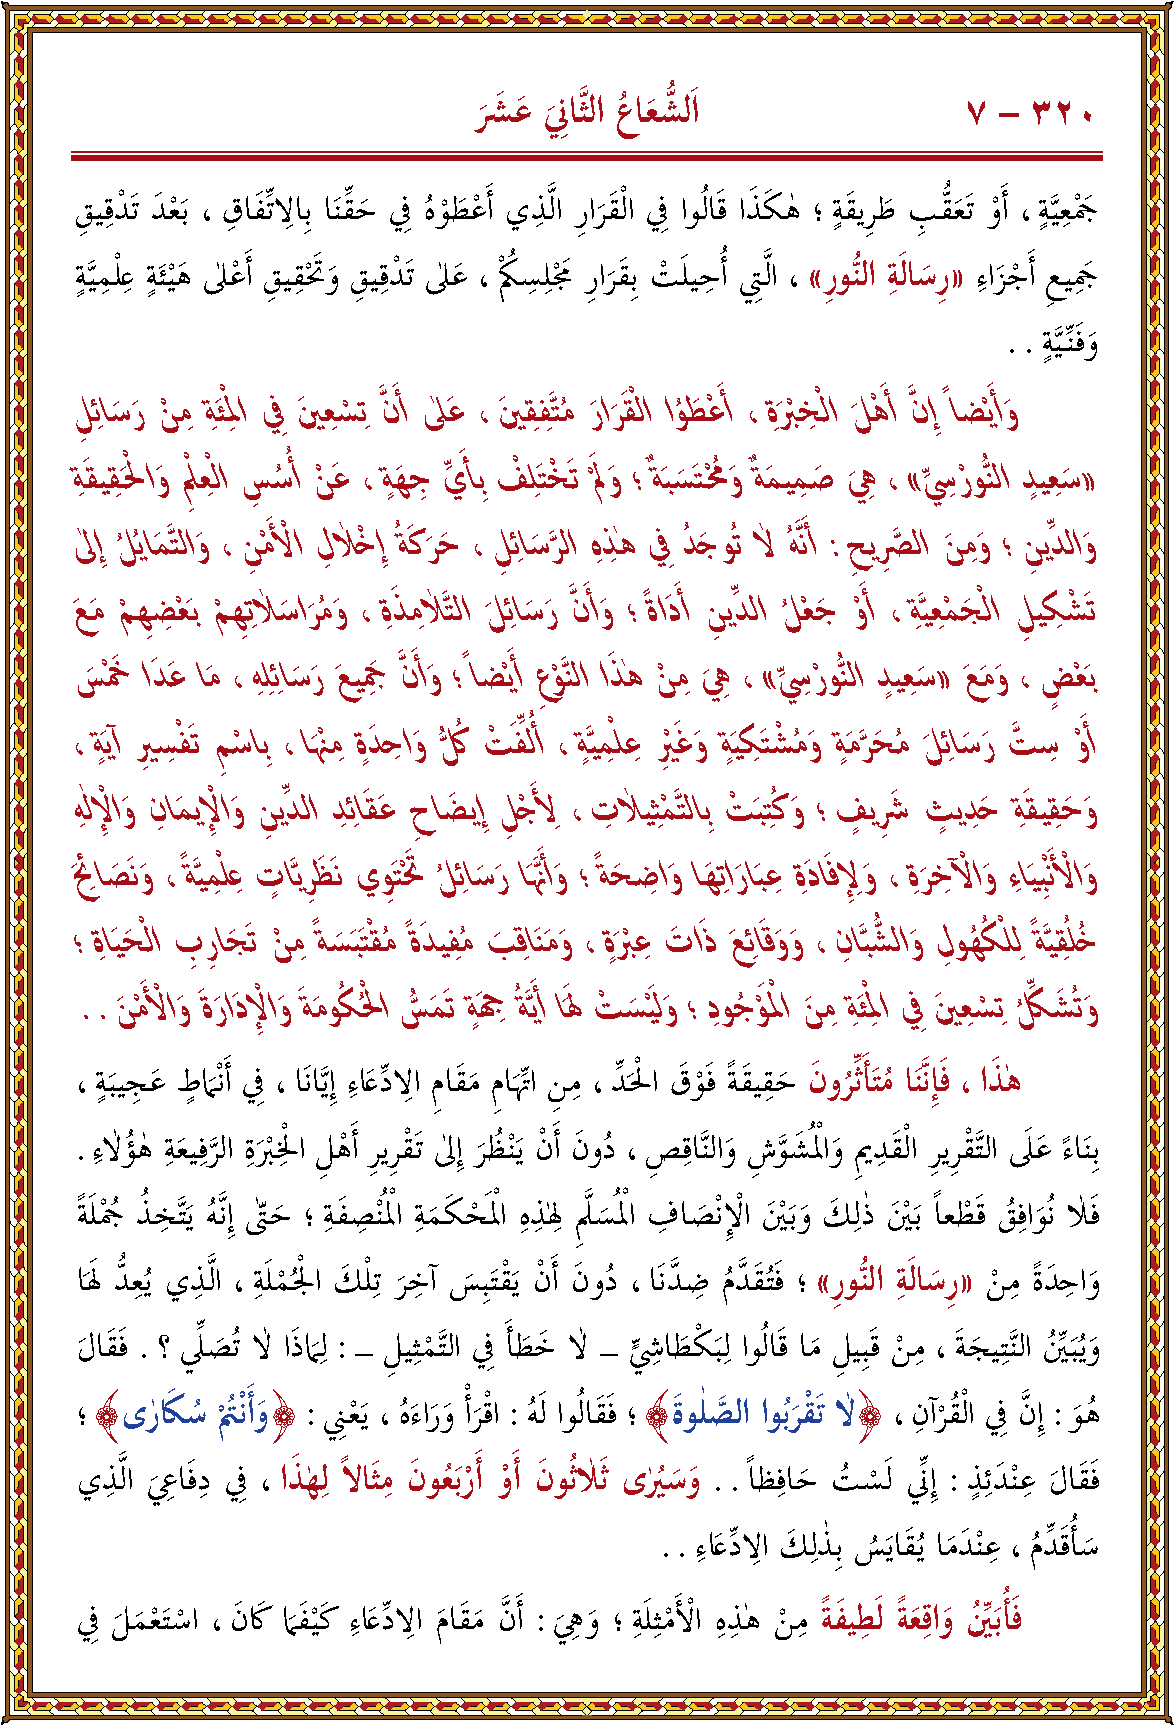 ٣٢٠ – ٧ اَلشُّعَاعُ الثَّانِيَ عَشَرَ
جَمْعِيَّةٍ ، أَوْ تَعَقُّبِ طَرِيقَةٍ ؛ هٰكَذَا قَالُوا فِي الْقَرَارِ الَّذِي أَعْطَوْهُ فِي حَقِّنَا بِالِاتِّفَاقِ ، بَعْدَ تَدْقِيقِ
جَمِيعِ أَجْزَاءِ «رِسَالَةِ النُّورِ» ، الَّتِي أُحِيلَتْ بِقَرَارِ مَجْلِسِكُمْ ، عَلٰى تَدْقِيقِ وَتَحْقِيقِ أَعْلٰى هَيْئَةٍ عِلْمِيَّةٍ
وَفَنِّيَّةٍ . .
وَأَيْضاً إِنَّ أَهْلَ الْخِبْرَةِ ، أَعْطَوُا الْقَرَارَ مُتَّفِقِينَ ، عَلٰى أَنَّ تِسْعِينَ فِي الْمِئَةِ مِنْ رَسَائِلِ
«سَعِيدٍ النُّورْسِيِّ» ، هِيَ صَمِيمَةٌ وَمُحْتَسَبَةٌ ؛ وَلَمْ تَخْتَلِفْ بِأَيِّ جِهَةٍ ، عَنْ أُسُسِ الْعِلْمِ وَالْحَقِيقَةِ
وَالدِّينِ ؛ وَمِنَ الصَّرِيحِ : أَنَّهُ لَا تُوجَدُ فِي هٰذِهِ الرَّسَائِلِ ، حَرَكَةُ إِخْلَالِ الْأَمْنِ ، وَالتَّمَايُلُ إِلٰى
تَشْكِيلِ الْجَمْعِيَّةِ ، أَوْ جَعْلُ الدِّينِ أَدَاةً ؛ وَأَنَّ رَسَائِلَ التَّلَامِذَةِ ، وَمُرَاسَلَاتِهِمْ بَعْضِهِمْ مَعَ
بَعْضٍ ، وَمَعَ «سَعِيدٍ النُّورْسِيِّ» ، هِيَ مِنْ هٰذَا النَّوْعِ أَيْضاً ؛ وَأَنَّ جَمِيعَ رَسَائِلِهِ ، مَا عَدَا خَمْسَ
أَوْ سِتَّ رَسَائِلَ مُحَرَّمَةٍ وَمُشْتَكِيَةٍ وَغَيْرِ عِلْمِيَّةٍ ، أُلِّفَتْ كُلُّ وَاحِدَةٍ مِنْهَا ، بِاسْمِ تَفْسِيرِ آيَةٍ ،
وَحَقِيقَةِ حَدِيثٍ شَرِيفٍ ؛ وَكُتِبَتْ بِالتَّمْثِيلَاتِ ، لِأَجْلِ إِيضَاحِ عَقَائِدِ الدِّينِ وَالْإِيمَانِ وَالْإِلٰهِ
وَالْأَنْبِيَاءِ وَالْآخِرَةِ ، وَلِإِفَادَةِ عِبَارَاتِهَا وَاضِحَةً ؛ وَأَنَّهَا رَسَائِلُ تَحْتَوِي نَظَرِيَّاتٍ عِلْمِيَّةً ، وَنَصَائِحَ
خُلُقِيَّةً لِلْكُهُولِ وَالشُّبَّانِ ، وَوَقَائِعَ ذَاتَ عِبْرَةٍ ، وَمَنَاقِبَ مُفِيدَةً مُقْتَبَسَةً مِنْ تَجَارِبِ الْحَيَاةِ ؛
وَتُشَكِّلُ تِسْعِينَ فِي الْمِئَةِ مِنَ الْمَوْجُودِ ؛ وَلَيْسَتْ لَهَا أَيَّةُ جِهَةٍ تَمَسُّ الْحُكُومَةَ وَالْإِدَارَةَ وَالْأَمْنَ . .
هٰذَا ، فَإِنَّنَا مُتَأَثِّرُونَ حَقِيقَةً فَوْقَ الْحَدِّ ، مِنِ اتِّهَامِ مَقَامِ الِادِّعَاءِ إِيَّانَا ، فِي أَنْمَاطٍ عَجِيبَةٍ ،
بِنَاءً عَلَى التَّقْرِيرِ الْقَدِيمِ وَالْمُشَوَّشِ وَالنَّاقِصِ ، دُونَ أَنْ يَنْظُرَ إِلٰى تَقْرِيرِ أَهْلِ الْخِبْرَةِ الرَّفِيعَةِ هٰؤُلَاءِ .
فَلَا نُوَافِقُ قَطْعاً بَيْنَ ذٰلِكَ وَبَيْنَ الْإِنْصَافِ الْمُسَلَّمِ لِهٰذِهِ الْمَحْكَمَةِ الْمُنْصِفَةِ ؛ حَتّٰى إِنَّهُ يَتَّخِذُ جُمْلَةً
وَاحِدَةً مِنْ «رِسَالَةِ النُّورِ» ؛ فَتُقَدَّمُ ضِدَّنَا ، دُونَ أَنْ يَقْتَبِسَ آخِرَ تِلْكَ الْجُمْلَةِ ، الَّذِي يُعِدُّ لَهَا
وَيُبَيِّنُ النَّتِيجَةَ ، مِنْ قَبِيلِ مَا قَالُوا لِبَكْطَاشِيٍّ – لَا خَطَأَ فِي التَّمْثِيلِ – : لِمَاذَا لَا تُصَلِّي ؟ . فَقَالَ
هُوَ : إِنَّ فِي الْقُرْآنِ ، ﴿لَا تَقْرَبُوا الصَّلٰوةَ﴾ ؛ فَقَالُوا لَهُ : اقْرَأْ وَرَاءَهُ ، يَعْنِي : ﴿وَأَنْتُمْ سُكَارٰى﴾ ؛
فَقَالَ عِنْدَئِذٍ : إِنِّي لَسْتُ حَافِظاً . . وَسَيُرٰى ثَلَاثُونَ أَوْ أَرْبَعُونَ مِثَالاً لِهٰذَا ، فِي دِفَاعِيَ الَّذِي
سَأُقَدِّمُ ، عِنْدَمَا يُقَايَسُ بِذٰلِكَ الِادِّعَاءِ . .
فَأُبَيِّنُ وَاقِعَةً لَطِيفَةً مِنْ هٰذِهِ الْأَمْثِلَةِ ؛ وَهِيَ : أَنَّ مَقَامَ الِادِّعَاءِ كَيْفَمَا كَانَ ، اسْتَعْمَلَ فِي